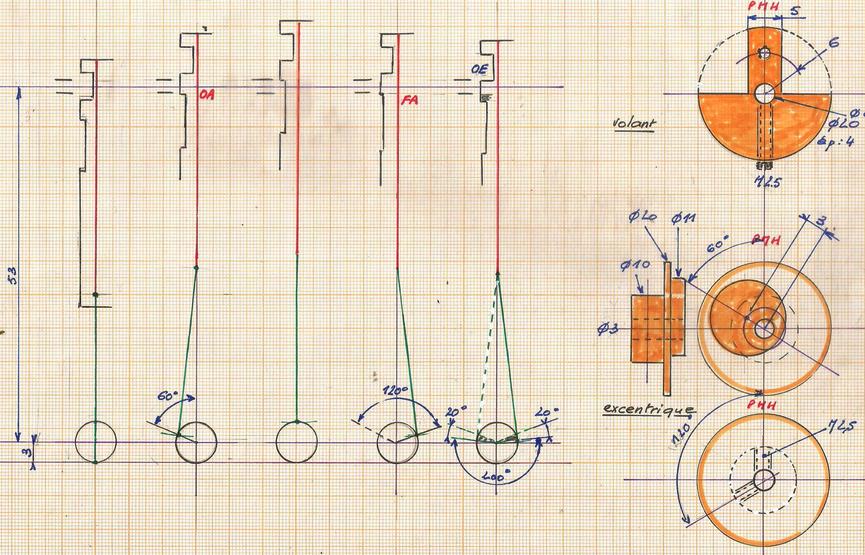 OA
FA
OE
53
3
60°
120°
20°
20°
200°
PMH
5
6
volant
Ø20
ép: 4
M2.5
Ø20
Ø11
60°
PMH
3
Ø10
Ø3
excentrique
PMH
120°
M2,5